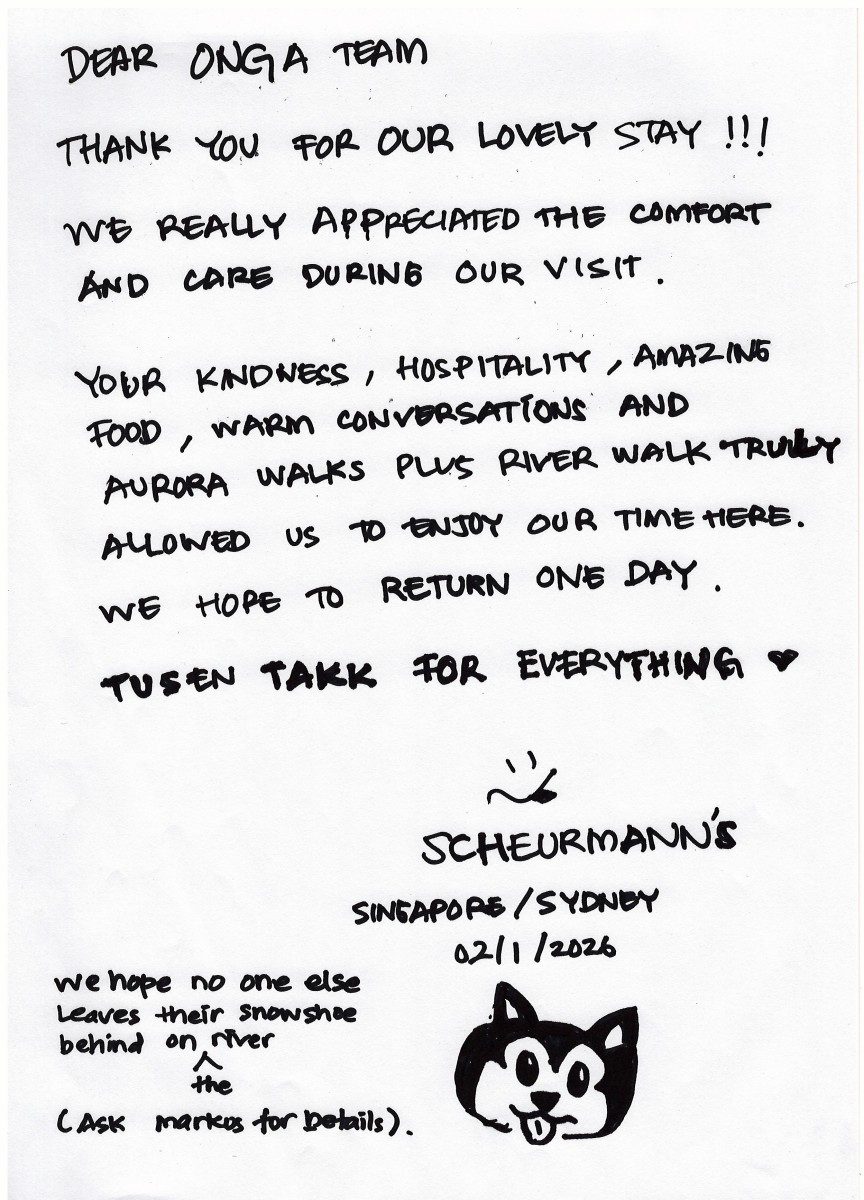 DEAR ONGA TEAM
THANK YOU FOR OUR LOVELY STAY !!!
WE REALLY APPRECIATED THE COMFORT
AND CARE DURING OUR VISIT.
YOUR KINDNESS, HOSPITALITY, AMAZING
FOOD, WARM CONVERSATIONS AND
AURORA WALKS PLUS RIVER WALK TRULY
ALLOWED US TO ENJOY OUR TIME HERE.
WE HOPE TO RETURN ONE DAY.
TUSEN TAKK FOR EVERYTHING ♥
SCHEURMANN'S
SINGAPORE/SYDNEY
02/1/2026
we hope no one else
Leaves their snowshoe
behind on the river
(Ask markus for Details).